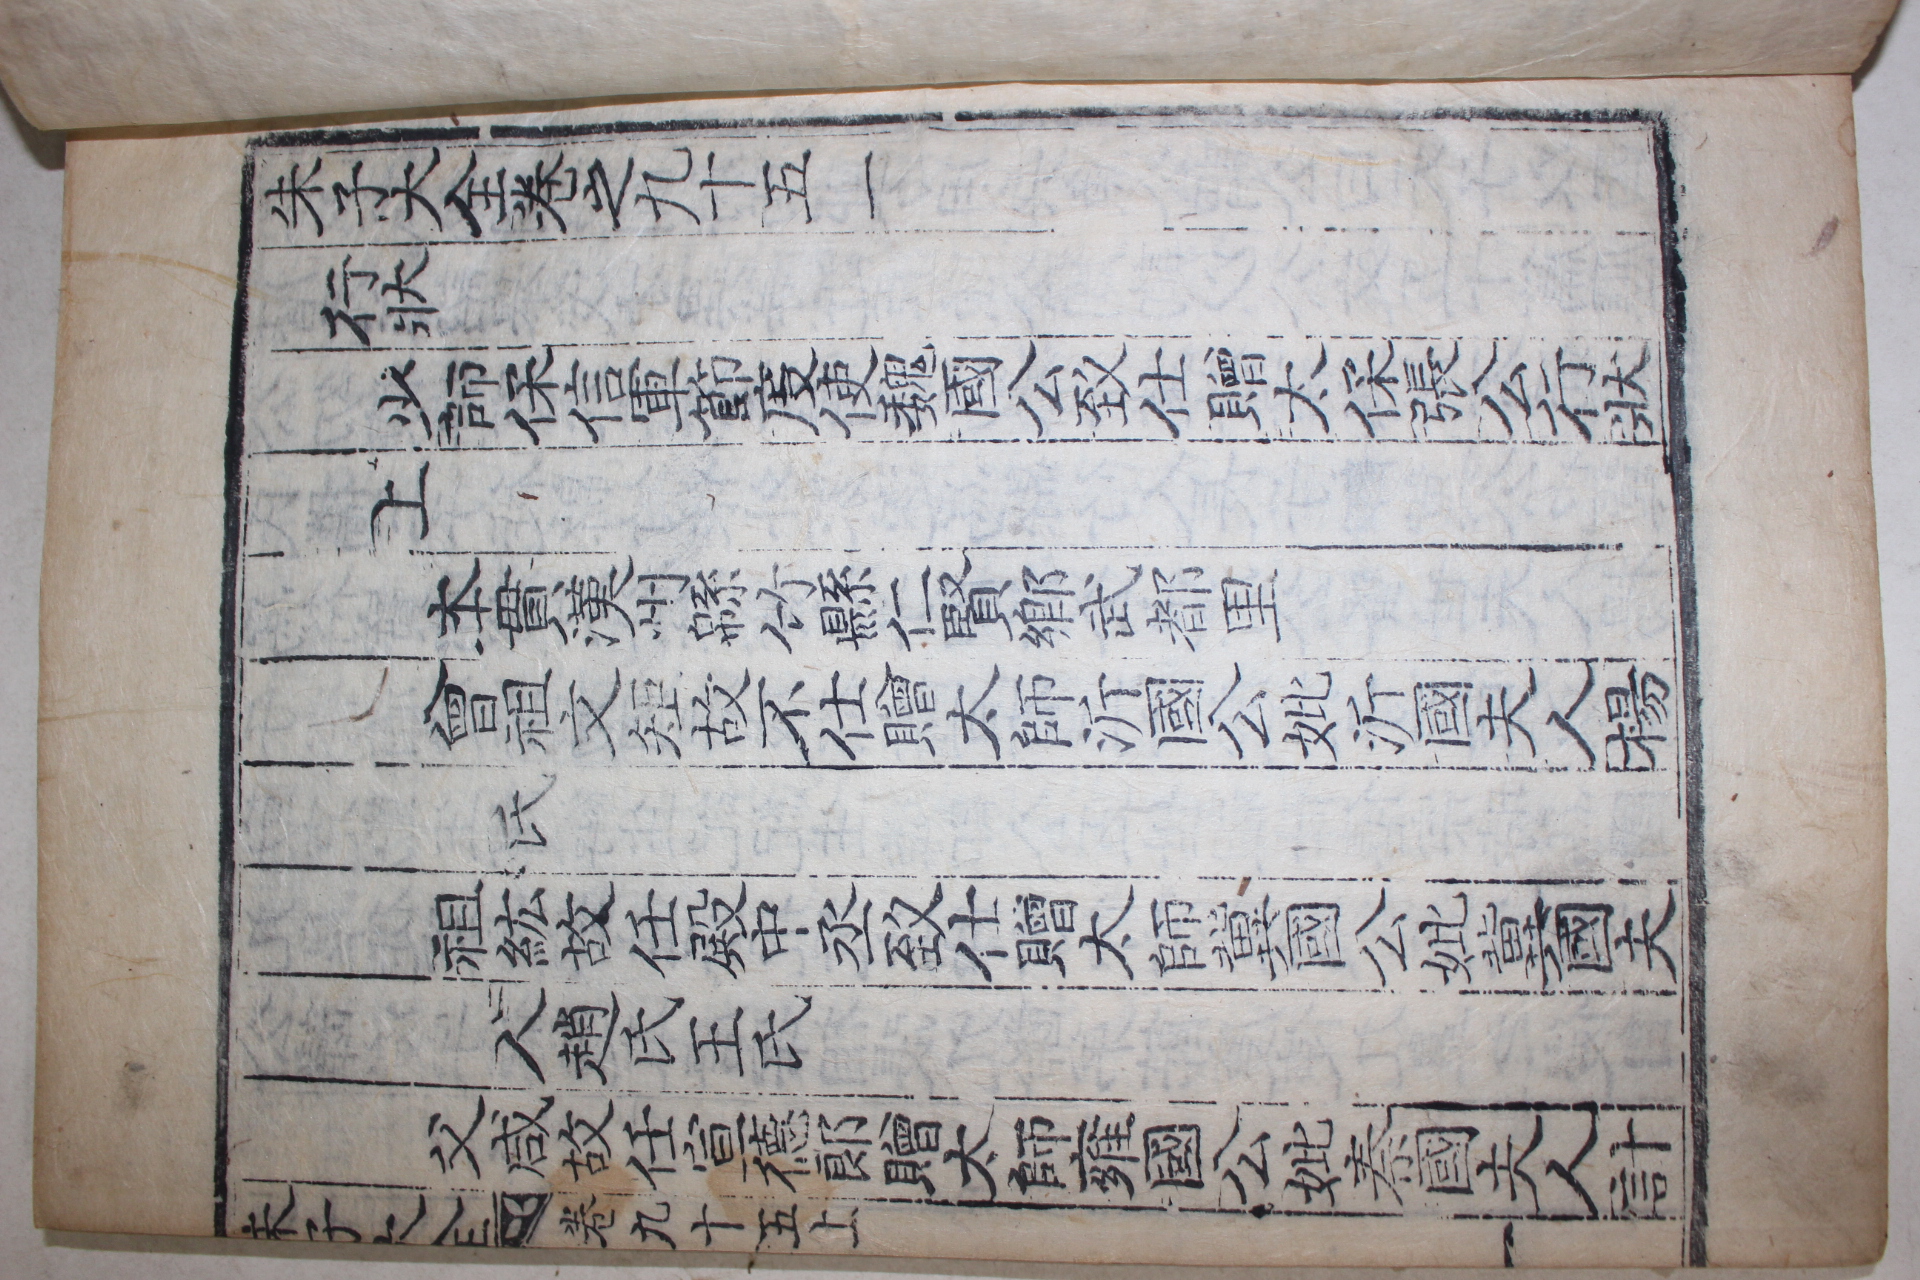 朱子大全卷之九十五一
行狀
少師保信軍節度使魏國公致仕贈太保張公行狀
上
本貫漢州緜竹縣仁賢鄉武都里
曾祖文矩故不仕贈太師沂國公妣沂國夫人楊
氏
祖紘故任殿中丞致仕贈太師冀國公妣冀國夫
人趙氏王氏
父咸故任宣德郎贈太師雍國公妣秦國夫人計
朱子大全 卷九十五上 一